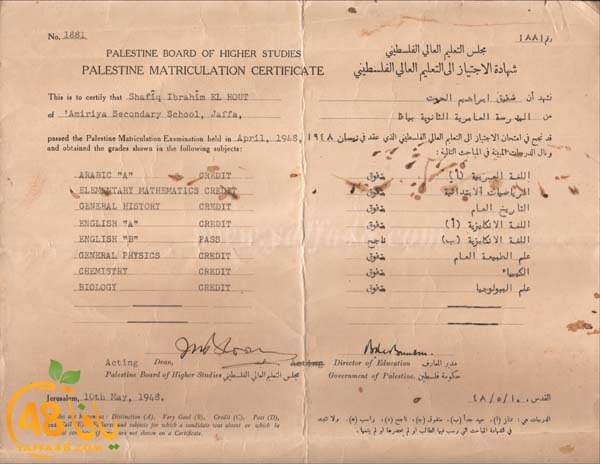 No. 1881
رقم ١٨٨١
PALESTINE BOARD OF HIGHER STUDIES
مجلس التعليم العالي الفلسطيني
PALESTINE MATRICULATION CERTIFICATE
شهادة الاجتياز الى التعليم العالي الفلسطيني
This is to certify that Shafîq Ibrahîm EL HOUT
نشهد أن شفيق ابراهيم الحوت
of 'Amiriya Secondary School, Jaffa,
من المدرسة العامرية الثانوية بيافا
passed the Palestine Matriculation Examination held in April, 1948,
قد نجح في امتحان الاجتياز الى التعليم العالي الفلسطيني الذي عقد في نيسان ١٩٤٨
and obtained the grades shown in the following subjects:
ونال الدرجات المبينة في المباحث التالية:
ARABIC "A" CREDIT
اللغة العربية (أ) متفوق
ELEMENTARY MATHEMATICS CREDIT
الرياضيات الابتدائية متفوق
GENERAL HISTORY CREDIT
التاريخ العام متفوق
ENGLISH "A" CREDIT
اللغة الانكليزية (أ) متفوق
ENGLISH "B" PASS
اللغة الانكليزية (ب) ناجح
GENERAL PHYSICS CREDIT
علم الطبيعة العام متفوق
CHEMISTRY CREDIT
الكيمياء متفوق
BIOLOGY CREDIT
علم البيولوجيا متفوق
www.yaffa48.com
Acting Dean,
Palestine Board of Higher Studies مجلس التعليم العالي الفلسطيني
Acting Director of Education مدير المعارف
Government of Palestine. حكومة فلسطين
Jerusalem, 10th May, 1948.
القدس، ١٠/٥/٤٨
Distinction (A), Very Good (B), Credit (C), Pass (D),
and subjects for which a candidate was absent or which he
are not shown on a Certificate.
الدرجات هي: ممتاز (أ)، جيد جداً (ب)، متفوق (ج)، ناجح (د)، راسب (ه)، ولا تثبت
في الشهادة المباحث التي رسب فيها الطالب او لم يحضرها او لم يتمها.
يافا 48
YAFFA48.COM